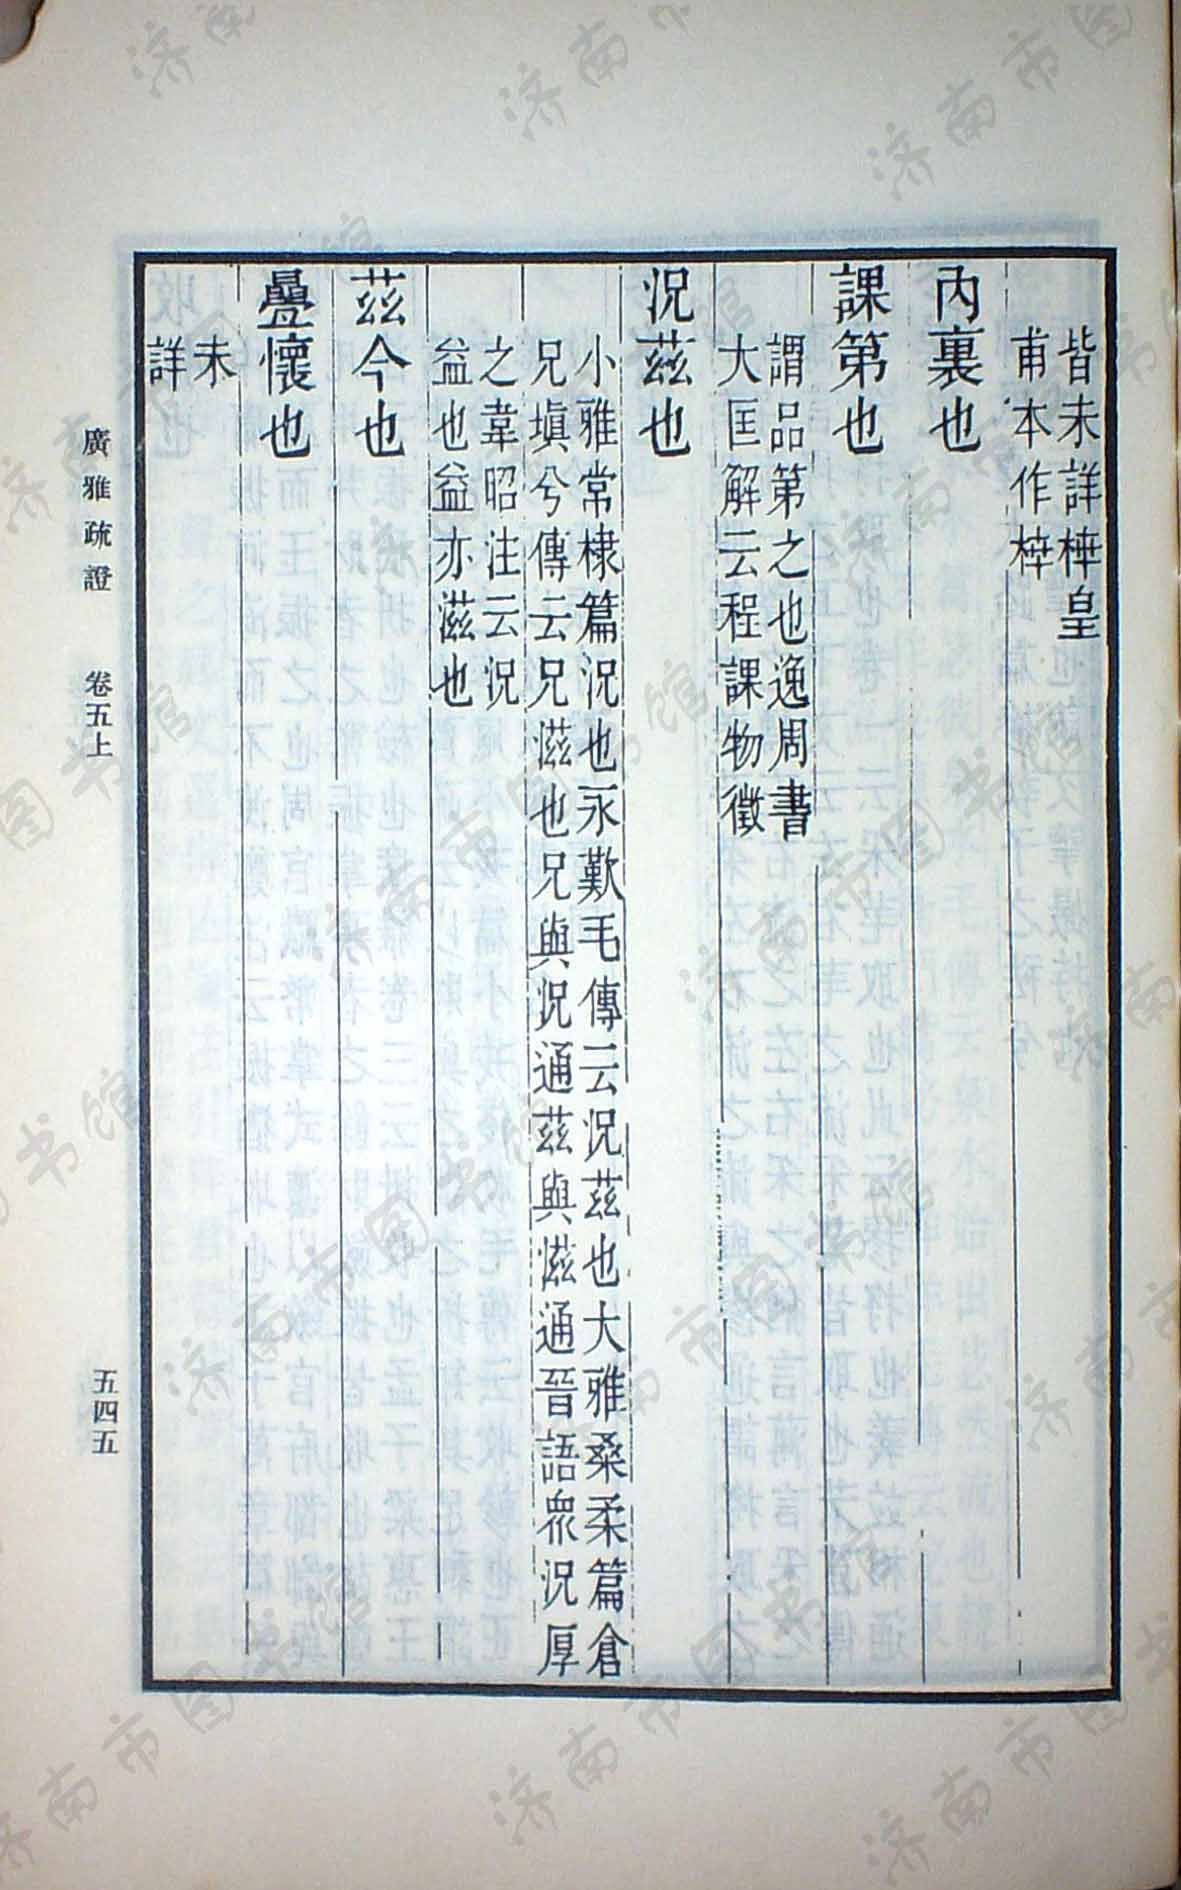 皆未詳椑皇
甫本作椊
內裏也
課第也
謂品第之也逸周書
大匡解云程課物徵
況茲也
小雅常棣篇況也永歎毛傳云況茲也大雅桑柔篇倉
兄塡兮傳云兄滋也兄與況通茲與滋通晉語衆況厚
之韋昭注云況
益也益亦滋也
茲今也
疊懷也
未
詳
廣雅疏證 卷五上
五四五
济南市图书馆